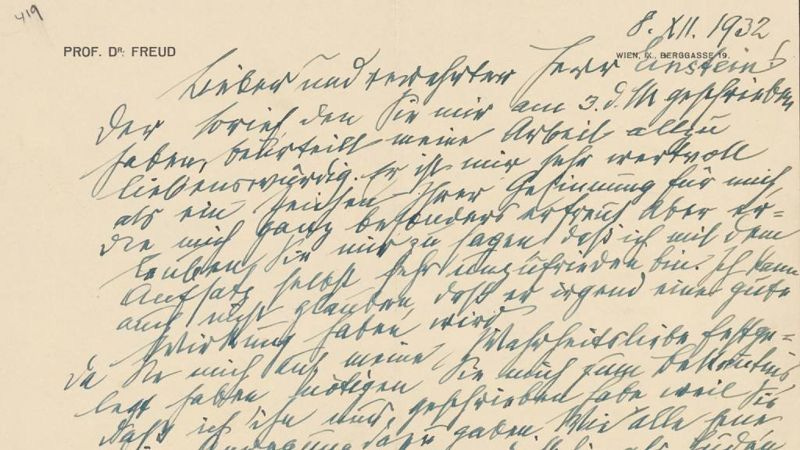 419
8. XII. 1932
PROF. Dr. FREUD
WIEN, IX., BERGGASSE 19.
Lieber und verehrter Herr Einstein!
Der Brief den Sie mir am 3. d. M geschrieben
haben, beurteilt meine Arbeit allzu
liebenswürdig. Er ist mir sehr wertvoll
als ein Zeichen Ihrer Gesinnung für mich,
die mich ganz besonders erfreut. Aber er=
lauben Sie mir zu sagen, daß ich mit dem
Aufsatz selbst sehr unzufrieden bin. Ich kann
auch nicht glauben, daß er irgend eine gute
Wirkung haben wird.
Da Sie mich auf meine Wahrheitsliebe festge=
legt haben nötigen Sie mich zum Bekenntnis
daß ich ihn nur geschrieben habe weil Sie
Anregung dazu gaben. Wie alle
als